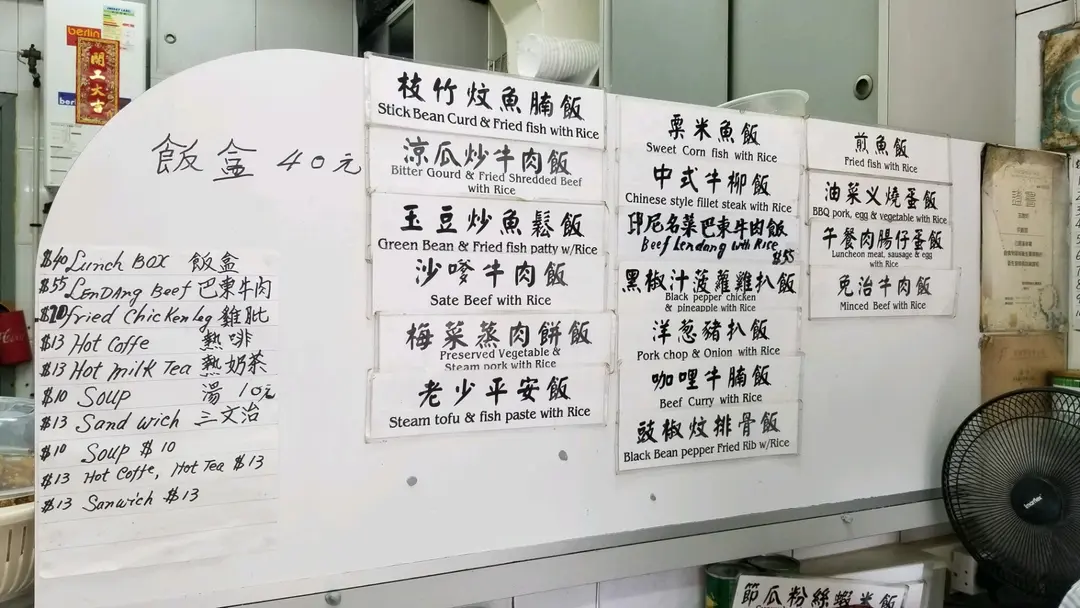 berlin
開工大吉
飯盒 40元
$40 Lunch Box 飯盒
$55 LenDAng Beef 巴東牛肉
$20 fried Chicken leg 雞肶
$13 Hot Coffe 熱啡
$13 Hot Milk Tea 熱奶茶
$10 Soup 湯 10元
$13 Sand wich 三文治
$10 Soup $10
$13 Hot Coffe, Hot Tea $13
$13 Sanwich $13
枝竹炆魚腩飯
Stick Bean Curd & Fried fish with Rice
涼瓜炒牛肉飯
Bitter Gourd & Fried Shredded Beef
with Rice
玉豆炒魚鬆飯
Green Bean & Fried fish patty w/Rice
沙嗲牛肉飯
Sate Beef with Rice
梅菜蒸肉餅飯
Preserved Vegetable &
Steam pork with Rice
老少平安飯
Steam tofu & fish paste with Rice
粟米魚飯
Sweet Corn fish with Rice
中式牛柳飯
Chinese style fillet steak with Rice
印尼名菜巴東牛肉飯
Beef Lendang with Rice
$55
黑椒汁菠蘿雞扒飯
Black pepper chicken
& pineapple with Rice
洋葱豬扒飯
Pork chop & Onion with Rice
咖哩牛腩飯
Beef Curry with Rice
豉椒炆排骨飯
Black Bean pepper Fried Rib w/Rice
煎魚飯
Fried fish with Rice
油菜义燒蛋飯
BBQ pork, egg & vegetable with Rice
午餐肉腸仔蛋飯
Luncheon meat, sausage & egg
with Rice
免治牛肉飯
Minced Beef with Rice
節瓜粉絲蝦米飯